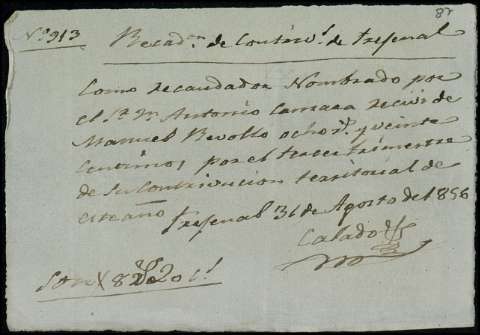 87
Nº 913
Recadon. de Contrivs. de Fresenal
Como recaudador Nombrado por
el Sr. Dn. Antonio Camara recivi de
Manuel Revollo ocho rs. y veinte
Centimos, por el tercer trimestre
de su Contrivucion territorial de
este año Fresenal 31 de Agosto de 1856
Calado
Son 8 rs. 20 cs.